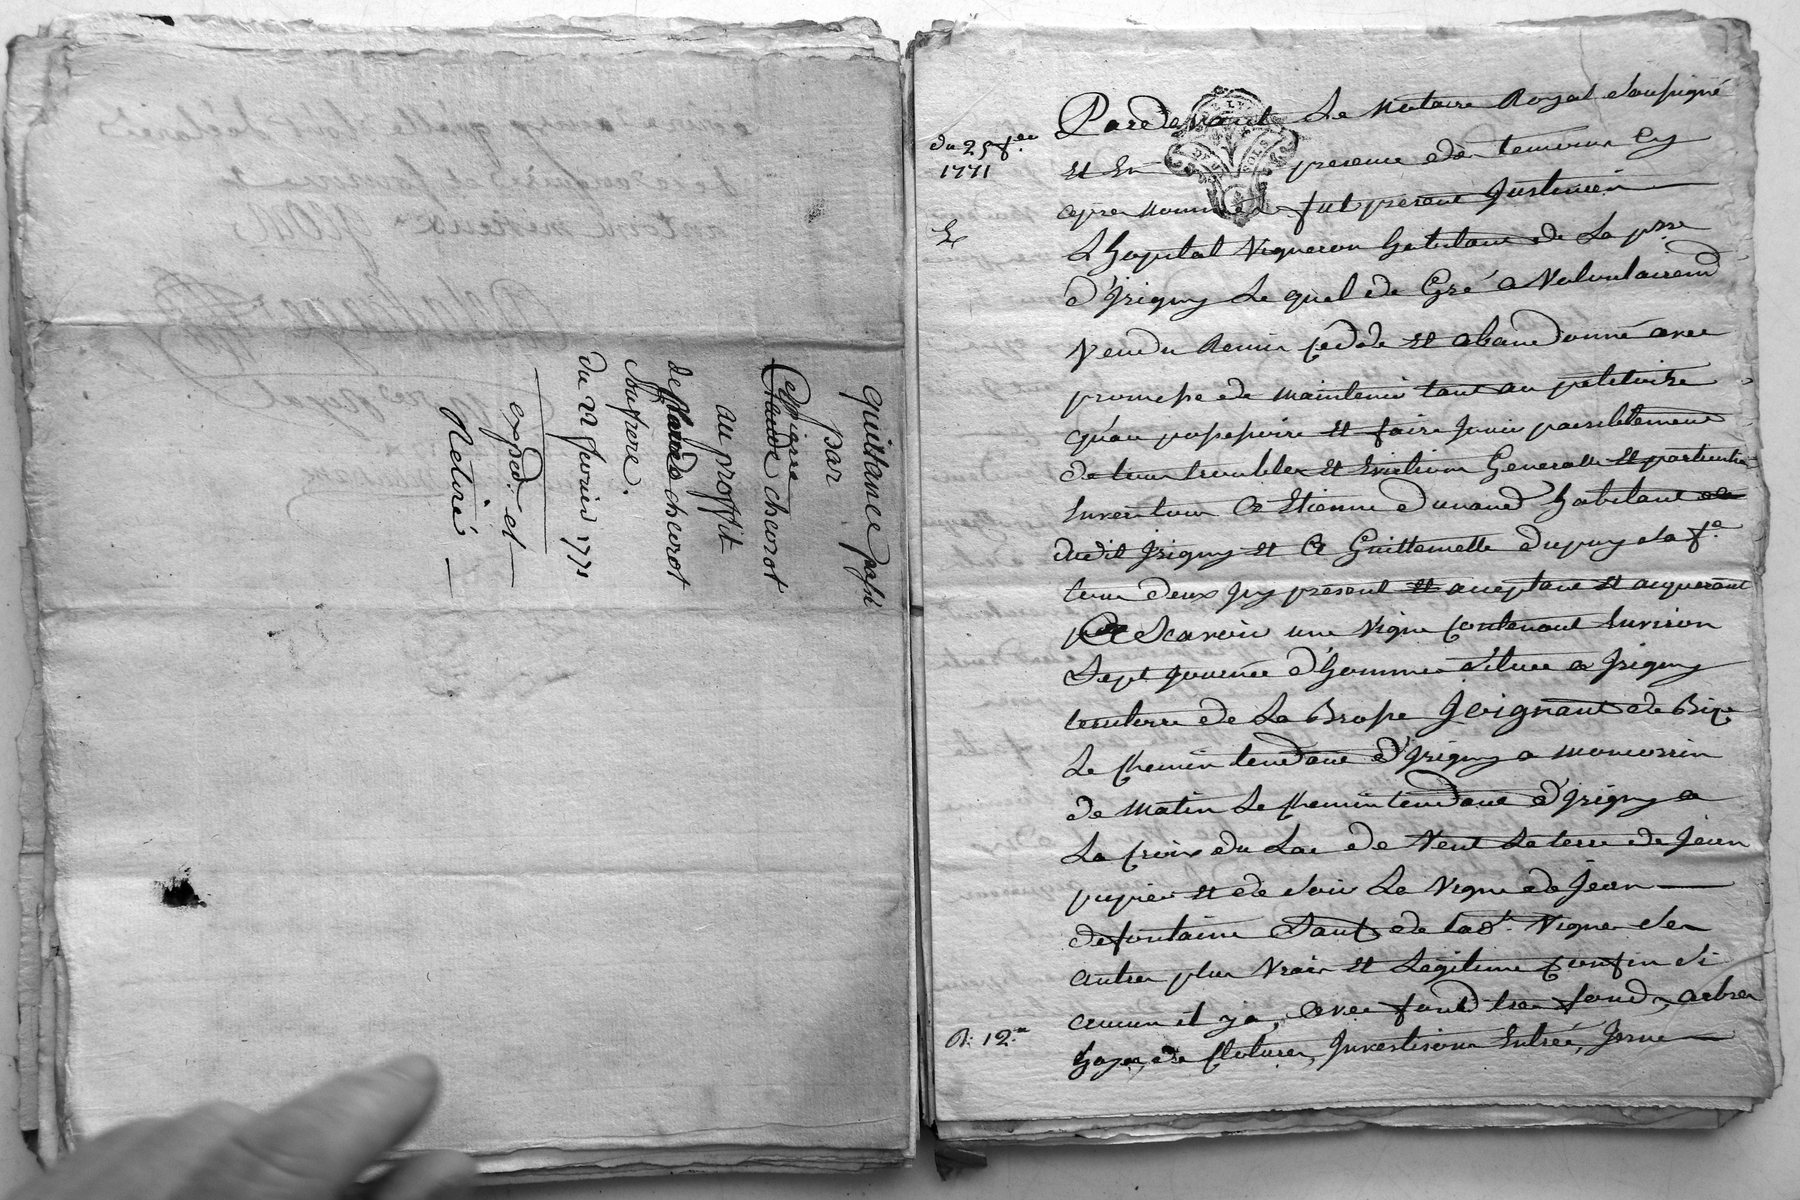 quittance passé
par
cepierre
Claude chevrot
au proffit
de pierre chevrot
Son frere.
du 22 fevrier 1771
expedié. et
Retiré
du 25 f.er
1771
Pardevant Le Notaire Royal Soussigné
Et En presence des temoins Cy
apres nommes fut present Justinien
L'hopital Vigneron habitant de La psse
d'Irigny Le quel de Gré a Volontairemt
Vendu Remis Cedde Et abandonné avec
promesse de maintenir tant au petitoire
qu'au possessoire Et faire Jouir paisiblement
de tous troubles Et Evictions Generalles Et particulie=
Envers tous A Etienne Dunand habitant
dudit Irigny Et A Guillemette Dupuy Sa f.e
tous deux Icy present Et acceptant Et acquerant
Scavoir une Vigne Contenant Environ
Sept journée d'hommes Située a Irigny
territoire de La Brosse Joignant de Bize
Le Chemin tendant d'Irigny a moncorin
de matin Le Chemin tendant d'Irigny a
La Croix du Lac de Vent La terre de Jean
pupier Et de Soir La Vigne de Jean
defontaine Sauf de lad. Vigne Ses
autres plus Vrais Et Legitime Confin Si
aucun il y a, avec fond tres fond, arbres
hayes, de Cloture, Investisons Entrée, Issue
R. 12.s